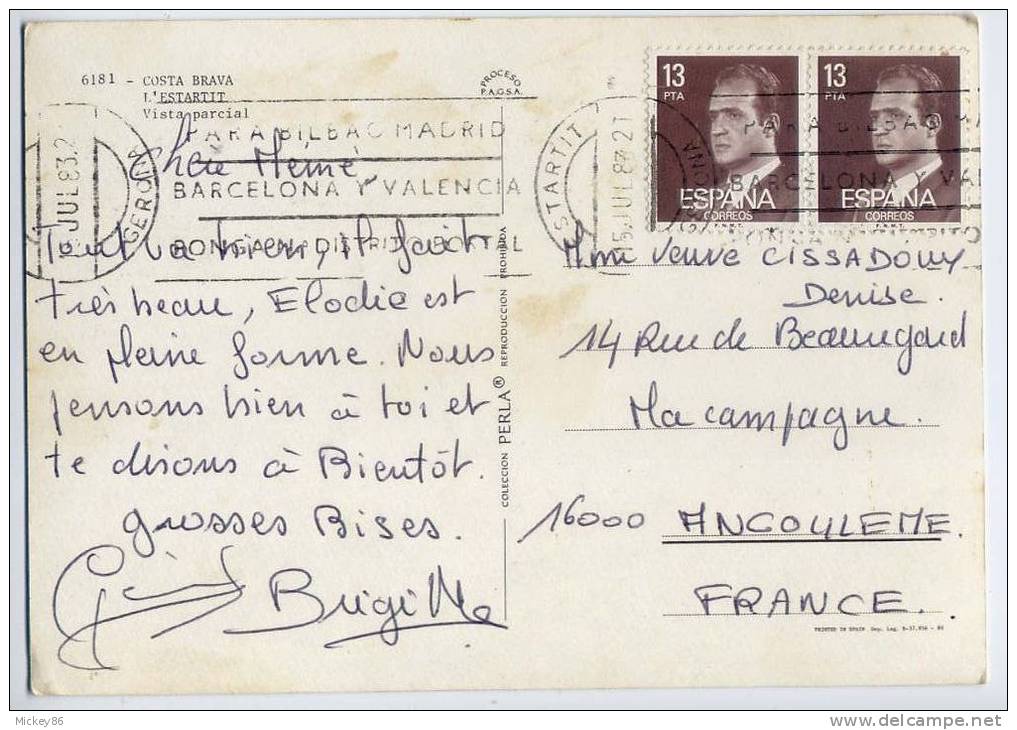 6181 - COSTA BRAVA
L'ESTARTIT
Vista parcial
PROCESO
P.A.G.S.A.
PARA BILBAO MADRID
BARCELONA Y VALENCIA
PONGA Nº DISTRITO POSTAL
JUL.83.2
GERONA
ESTARTIT
15.JUL.83 21
13
PTA
ESPAÑA
CORREOS
13
PTA
ESPAÑA
CORREOS
PARA BILBAO
BARCELONA Y VAL
Chère Mémé
Tout va bien, il fait
très beau, Elodie est
en pleine forme. Nous
pensons bien à toi et
te disons à Bientôt.
grosses Bises.
Brigitte
COLECCION PERLA® REPRODUCCION PROHIBIDA
Mme Veuve CISSADOUY
Denise.
14 Rue de Beauregard
Ma campagne.
16000 ANGOULEME.
FRANCE.
PRINTED IN SPAIN Dep. Leg. B-37.856 - 80
Mickey86
www.delcampe.net